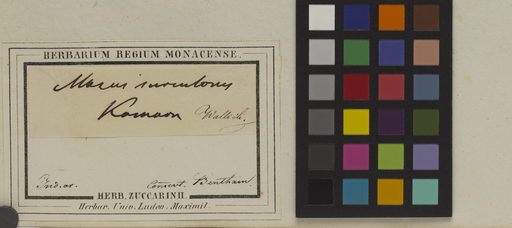 HERBARIUM REGIUM MONACENSE.
Mazus surculosus
Kamaon Wallich.
Ind. or. Comm. Bentham
HERB. ZUCCARINII
Herbar. Univ. Ludov. Maximil.